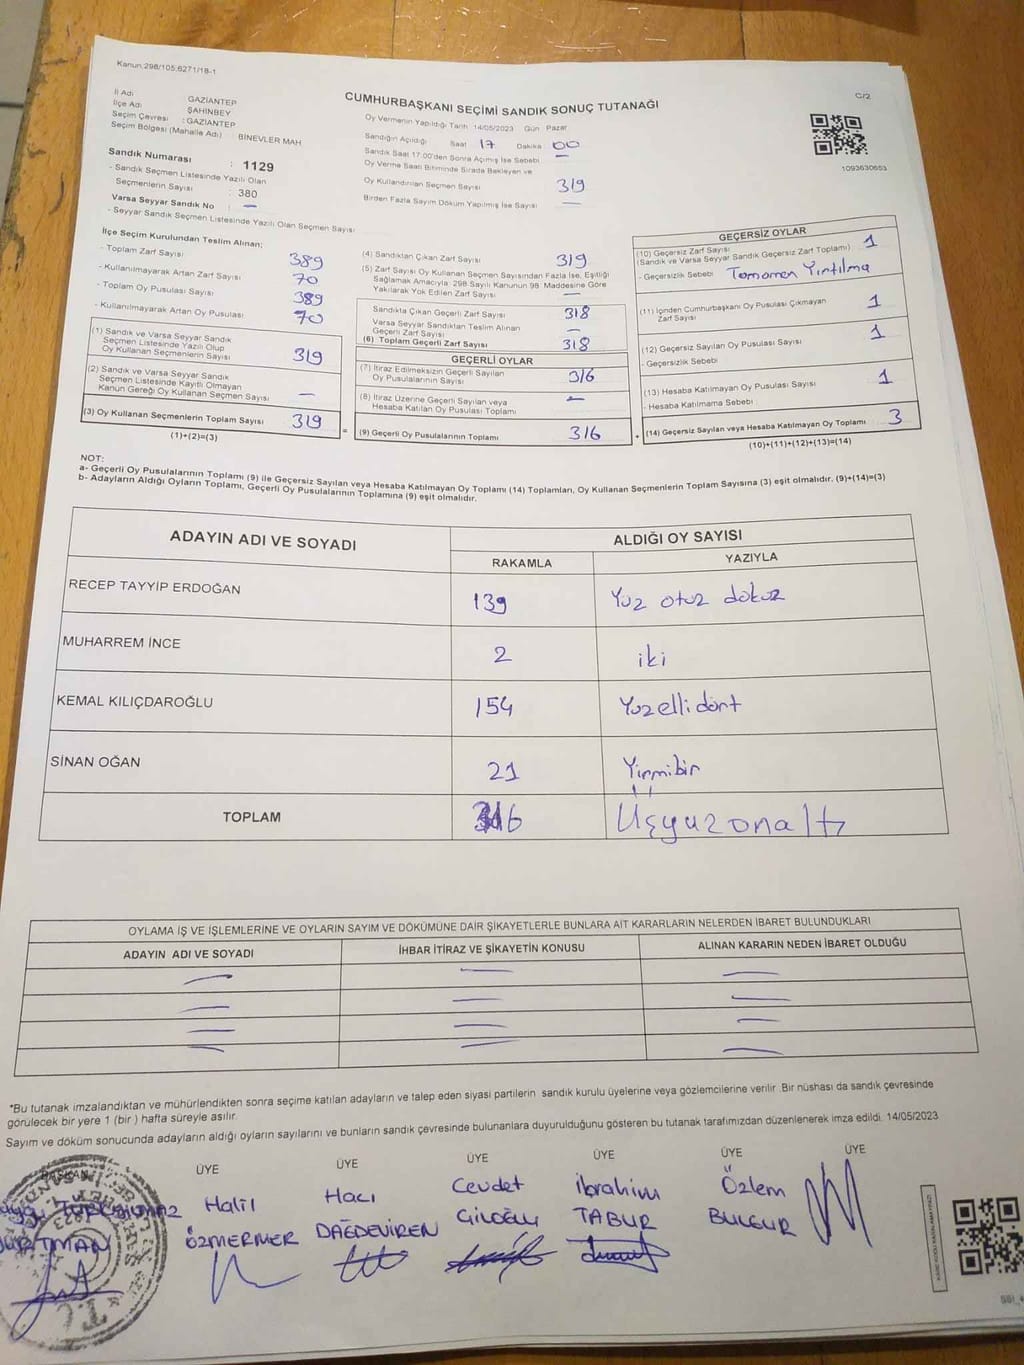 Kanun:298/105,6271/18-1
CUMHURBAŞKANI SEÇİMİ SANDIK SONUÇ TUTANAĞI
C/2
İl Adı GAZİANTEP
İlçe Adı ŞAHİNBEY
Seçim Çevresi : GAZİANTEP
Seçim Bölgesi (Mahalle Adı) : BİNEVLER MAH
Sandık Numarası : 1129
- Sandık Seçmen Listesinde Yazılı Olan
Seçmenlerin Sayısı : 380
Varsa Seyyar Sandık No —
- Seyyar Sandık Seçmen Listesinde Yazılı Olan Seçmen Sayısı
Oy Vermenin Yapıldığı Tarih :14/05/2023 Gün Pazar
Sandığın Açıldığı Saat 17 Dakika 00
Sandık Saat 17:00'den Sonra Açımış İse Sebebi —
Oy Verme Saati Bitiminde Sırada Bekleyen ve
Oy Kullandırılan Seçmen Sayısı 319
Birden Fazla Sayım Döküm Yapılmış İse Sayısı —
1093630653
İlçe Seçim Kurulundan Teslim Alınan;
- Toplam Zarf Sayısı 389
- Kullanılmayarak Artan Zarf Sayısı 70
- Toplam Oy Pusulası Sayısı 389
- Kullanılmayarak Artan Oy Pusulası 70
(1) Sandık ve Varsa Seyyar Sandık
Seçmen Listesinde Yazılı Olup
Oy Kullanan Seçmenlerin Sayısı 319
(2) Sandık ve Varsa Seyyar Sandık
Seçmen Listesinde Kayıtlı Olmayan
Kanun Gereği Oy Kullanan Seçmen Sayısı —
(3) Oy Kullanan Seçmenlerin Toplam Sayısı 319
(1)+(2)=(3)
(4) Sandıktan Çıkan Zarf Sayısı 319
(5) Zarf Sayısı Oy Kullanan Seçmen Sayısından Fazla İse, Eşitliği
Sağlamak Amacıyla; 298 Sayılı Kanunun 98. Maddesine Göre
Yakılarak Yok Edilen Zarf Sayısı —
Sandıkta Çıkan Geçerli Zarf Sayısı 318
Varsa Seyyar Sandıktan Teslim Alınan
Geçerli Zarf Sayısı —
(6) Toplam Geçerli Zarf Sayısı 318
GEÇERLİ OYLAR
(7) İtiraz Edilmeksizin Geçerli Sayılan
Oy Pusulalarının Sayısı 316
(8) İtiraz Üzerine Geçerli Sayılan veya
Hesaba Katılan Oy Pusulası Toplamı —
= (9) Geçerli Oy Pusulalarının Toplamı 316
GEÇERSİZ OYLAR
(10) Geçersiz Zarf Sayısı 1
(Sandık ve Varsa Seyyar Sandık Geçersiz Zarf Toplamı)
- Geçersizlik Sebebi Tamamen Yırtılma
(11) İçinden Cumhurbaşkanı Oy Pusulası Çıkmayan
Zarf Sayısı 1
(12) Geçersiz Sayılan Oy Pusulası Sayısı 1
- Geçersizlik Sebebi
(13) Hesaba Katılmayan Oy Pusulası Sayısı 1
- Hesaba Katılmama Sebebi
+ (14) Geçersiz Sayılan veya Hesaba Katılmayan Oy Toplamı 3
(10)+(11)+(12)+(13)=(14)
NOT:
a- Geçerli Oy Pusulalarının Toplamı (9) ile Geçersiz Sayılan veya Hesaba Katılmayan Oy Toplamı (14) Toplamları, Oy Kullanan Seçmenlerin Toplam Sayısına (3) eşit olmalıdır. (9)+(14)=(3)
b- Adayların Aldığı Oyların Toplamı, Geçerli Oy Pusulalarının Toplamına (9) eşit olmalıdır.
ADAYIN ADI VE SOYADI ALDIĞI OY SAYISI
RAKAMLA YAZIYLA
RECEP TAYYİP ERDOĞAN 139 Yüz otuz dokuz
MUHARREM İNCE 2 iki
KEMAL KILIÇDAROĞLU 154 Yüzellidört
SİNAN OĞAN 21 Yirmibir
TOPLAM 316 Üçyüzonaltı
OYLAMA İŞ VE İŞLEMLERİNE VE OYLARIN SAYIM VE DÖKÜMÜNE DAİR ŞİKAYETLERLE BUNLARA AİT KARARLARIN NELERDEN İBARET BULUNDUKLARI
ADAYIN ADI VE SOYADI İHBAR İTİRAZ VE ŞİKAYETİN KONUSU ALINAN KARARIN NEDEN İBARET OLDUĞU
— — —
— — —
— — —
— — —
*Bu tutanak imzalandıktan ve mühürlendikten sonra seçime katılan adayların ve talep eden siyasi partilerin sandık kurulu üyelerine veya gözlemcilerine verilir. Bir nüshası da sandık çevresinde
görülecek bir yere 1 (bir) hafta süreyle asılır.
Sayım ve döküm sonucunda adayların aldığı oyların sayılarını ve bunların sandık çevresinde bulunanlara duyurulduğunu gösteren bu tutanak tarafımızdan düzenlenerek imza edildi. 14/05/2023
BAŞKAN ÜYE ÜYE ÜYE ÜYE ÜYE ÜYE
Halil Hacı Cevdet İbrahim Özlem
ÖZMERMER DAĞDEVİREN TABUR BULGUR
T.C.